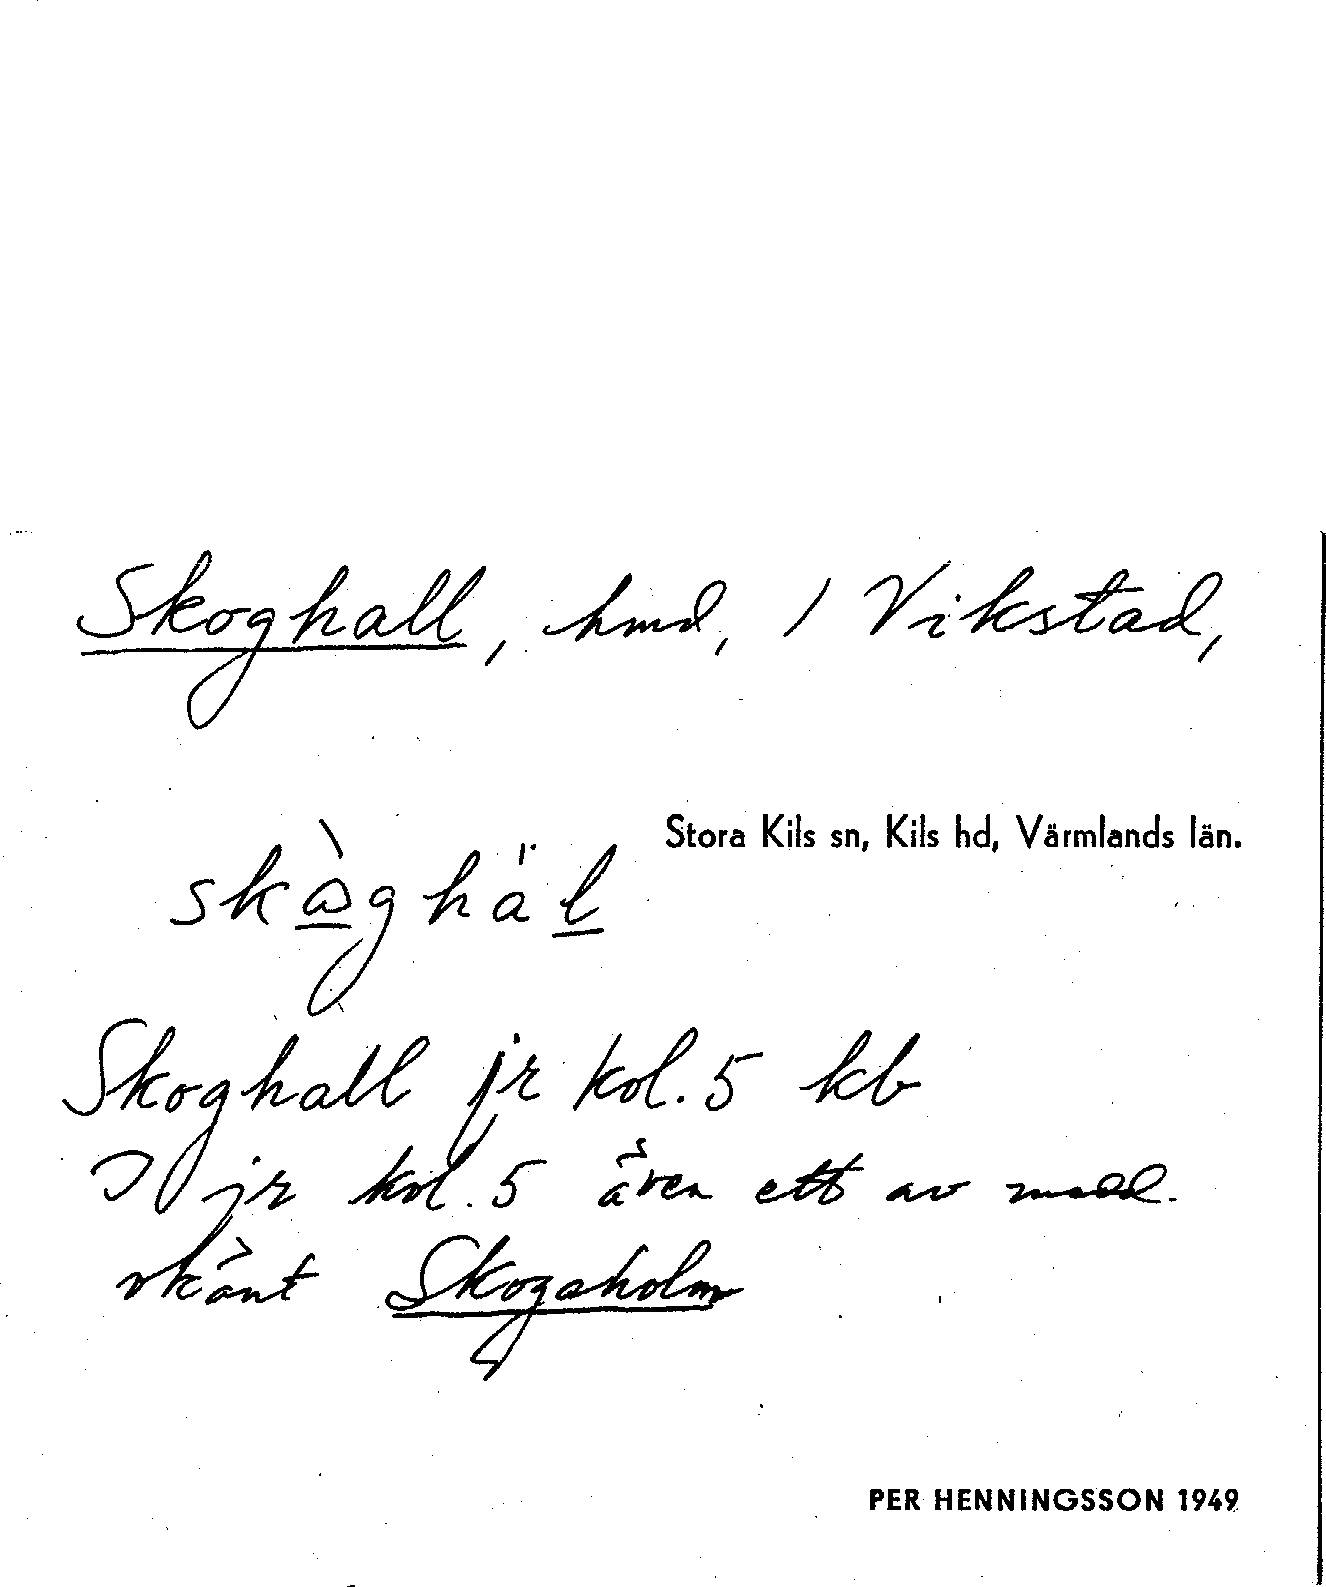 Skoghall, hmd, / Vikstad,
Stora Kils sn, Kils hd, Värmlands län.
Skoghall jr kol. 5 kb
jr kol. 5 även ett av medd.
okänt Skogsholm
PER HENNINGSSON 1949